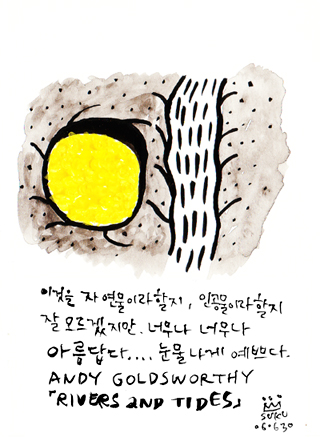 이것을 자연물이라할지, 인공물이라할지
잘 모르겠지만. 너무나 너무나
아름답다.... 눈물나게 예쁘다.
ANDY GOLDSWORTHY
「RIVERS AND TIDES」
SUKU
06.6.30